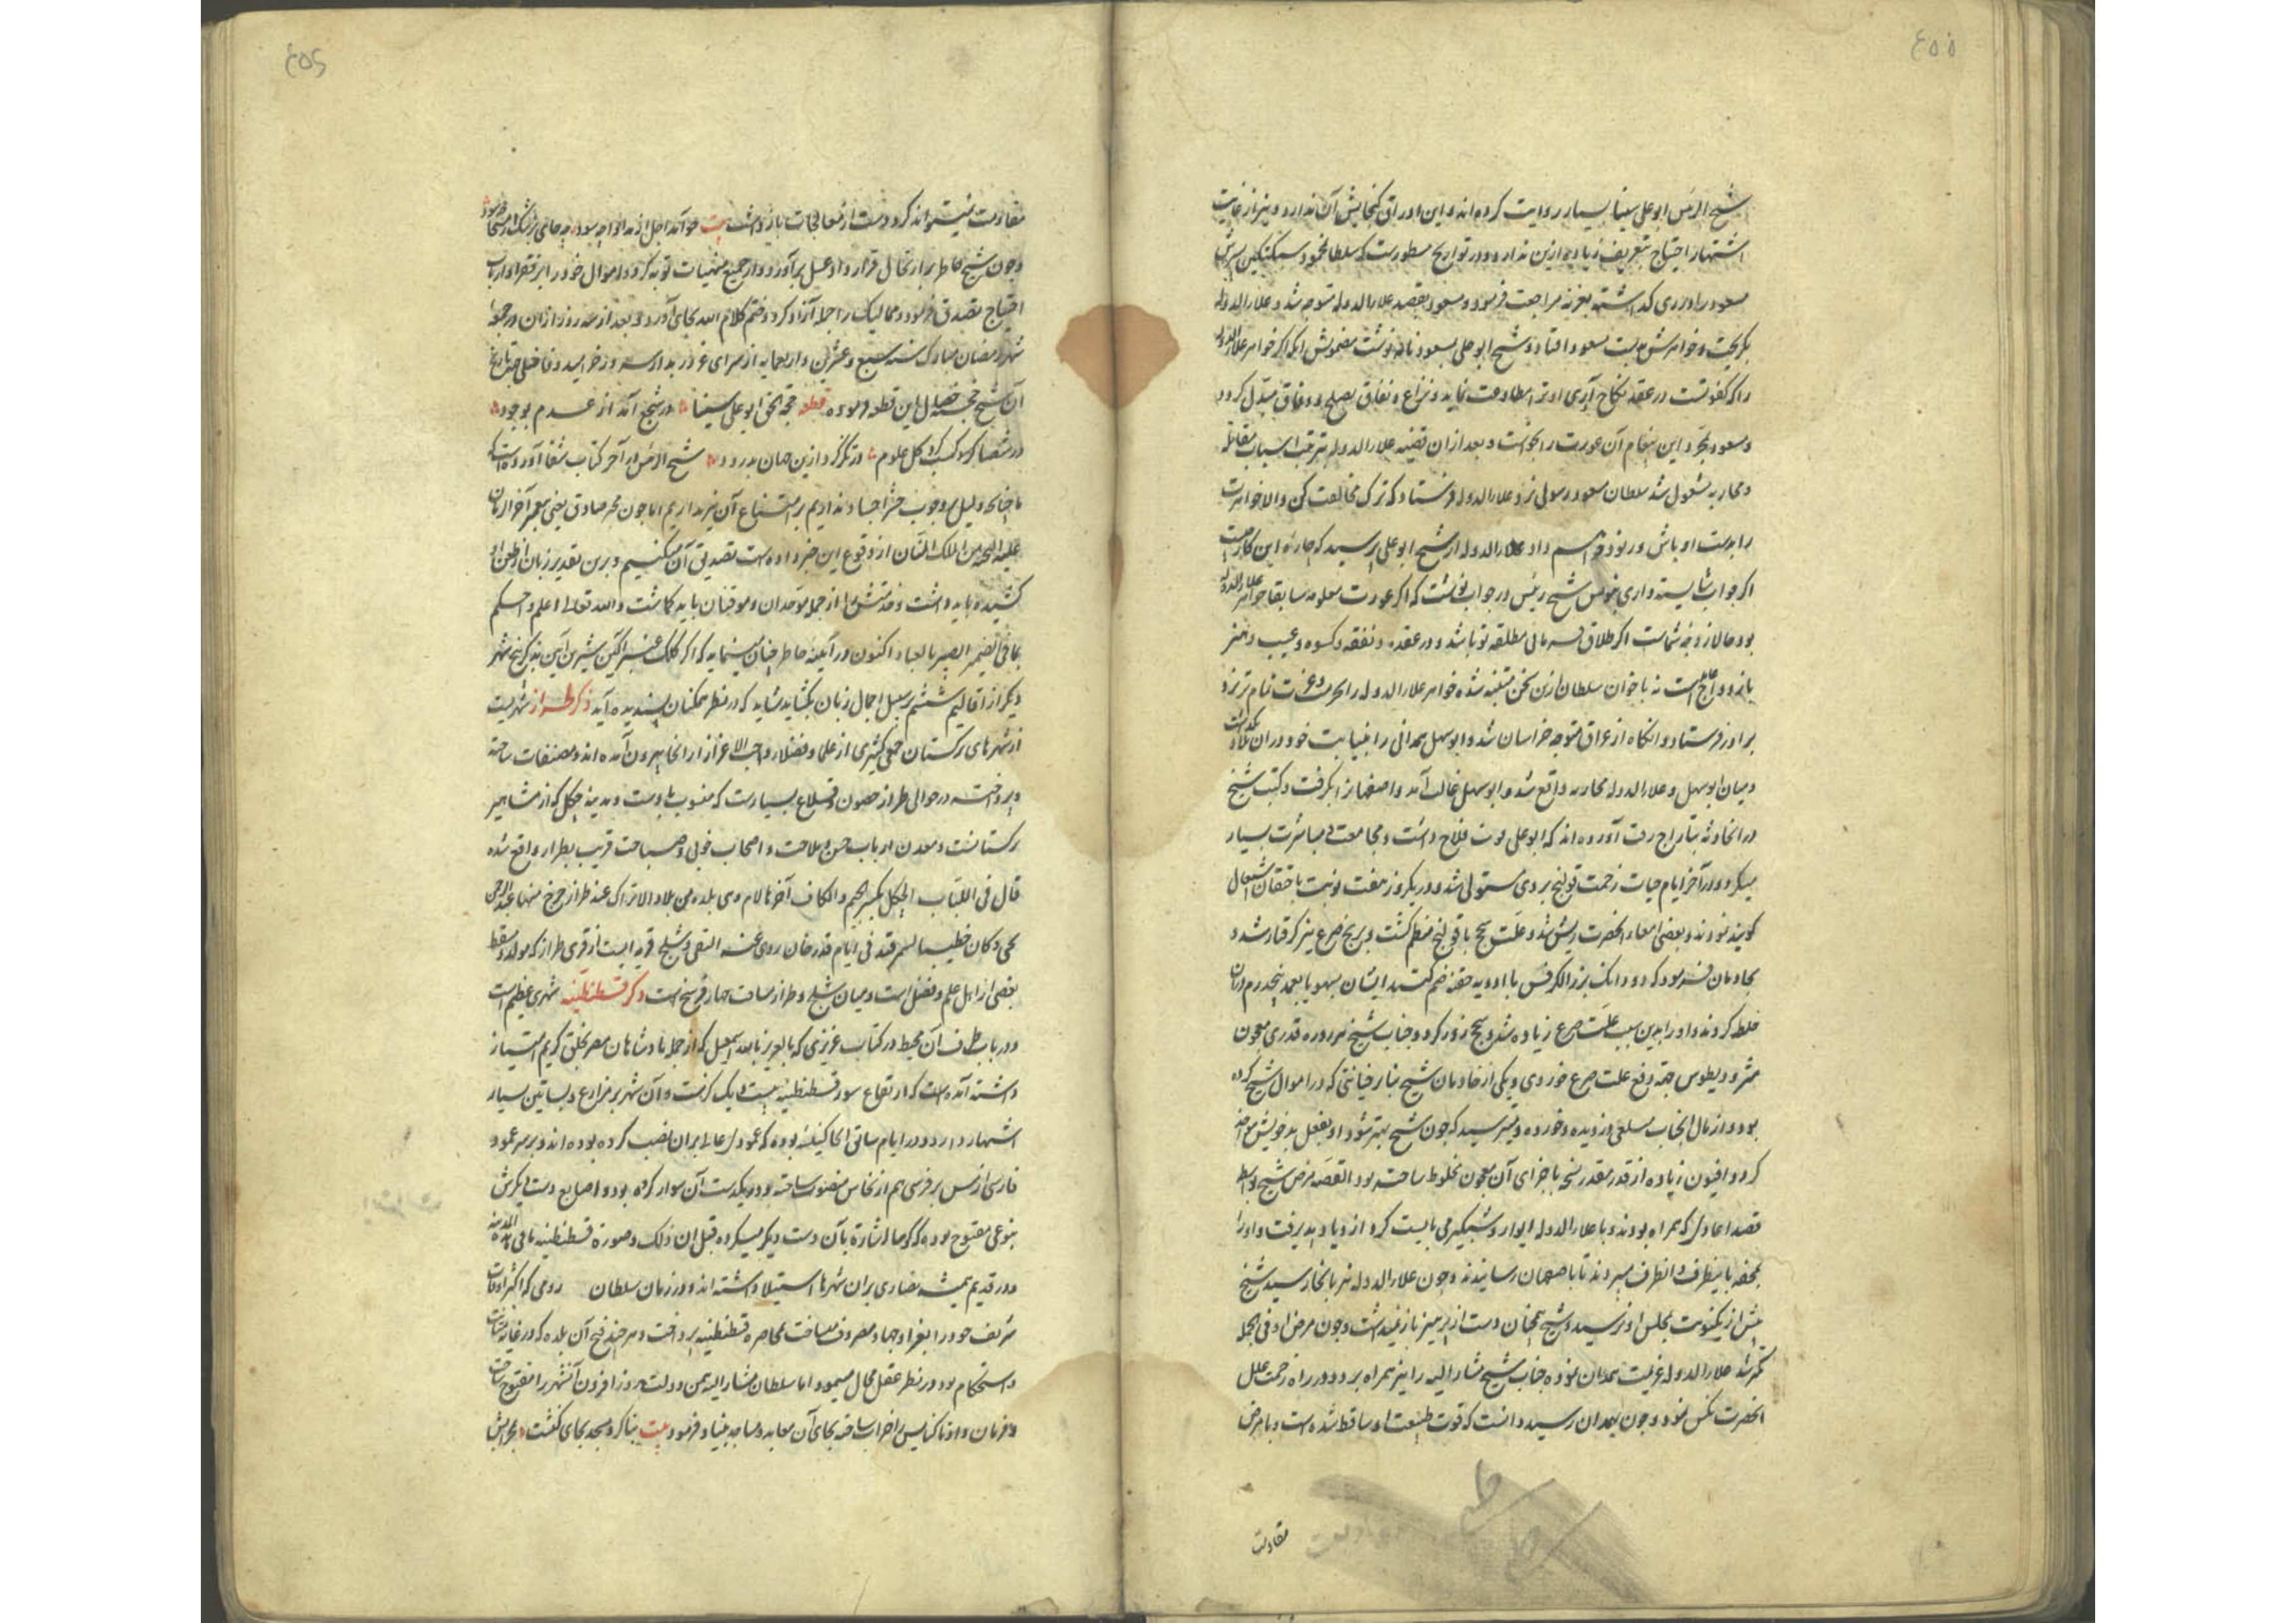 ٤٥٥
شیخ الرئیس ابو علی سینا بسیار روایت کرده‌اند و این اوراق گنجایش آن ندارد و نیز از غایت
اشتهار احتیاج بتعریف زیاده ازین ندارد و در تواریخ مسطورست که سلطان محمود سبکتکین پسرش
مسعود را در ری گذاشته بغزنه مراجعت فرمود و مسعود بقصد علاء الدوله متوجه شد و علاء الدوله
بگریخت و خواهرش بدست مسعود افتاد و شیخ ابو علی بمسعود نامه نوشت مضمونش آنکه اگر خواهر علاء الدوله
را که کفو تست در عقد نکاح آری او ترا مطاوعت نماید و نزاع و نفاق بصلح و وفاق مبدّل گردد
و مسعود بمجرد این پیغام آن عورت را بخواست و بعد ازان قضیه علاء الدوله بترتیب اسباب مقاتله
و محاربه مشغول شد سلطان مسعود رسولی نزد علاء الدوله فرستاد که ترک مخالفت کن والا خواهرت
را بدست اوباش و رنود خواهم داد علاء الدوله از شیخ ابو علی پرسید که چاره این کار چیست
اگر جواب شایسته داری بنویس شیخ رئیس در جواب نوشت که اگر عورت معلومه سابقا خواهر علاء الدوله
بود حالا زوجه شماست اگر طلاق دهی مطلقه تو باشد و در عقده و نفقه و کسوه و عیب و هنر
بازواج است نه باخوان سلطان ازین سخن متنبه شده خواهر علاء الدوله را بحرمت و عزت تمام تر نزد
برادر فرستاد و آنگاه از عراق متوجه خراسان شد و ابو سهل همدانی را بنیابت خود دران بلاد بگذاشت
و میان ابو سهل و علاء الدوله محاربه واقع شد و ابو سهل غالب آمد و اصفهان را بگرفت و کتب شیخ
در انحادثه بتاراج رفت آورده‌اند که ابو علی قوت فلاح داشت و مجامعت و مباشرت بسیار
میکرد و در آخر ایام حیات زحمت قولنج بر وی مستولی شد و در یکروز هفت نوبت باحتقان اشتغال
گویند نمودند و بعضی امعاء انحضرت ریش شد و علت سحج با قولنج منظم گشت و برنج صرع نیز گرفتار شد و
بخادمان فرمود که دو دانک بزر الکرفس با ادویه حقنه ضم کنید ایشان بسهو یا بعمد پنج درم دران
خلط کردند و او را بدین سبب علت صرع زیاده شد و سحج زور کرد و جناب شیخ هر روزه قدری معجون
مثرودیطوس جهة دفع علت صرع خوردی و یکی از خادمان شیخ بنابر خیانتی که در اموال شیخ کرده
بود و از مال انجناب مبلغی دزدیده و خورده و میترسید که چون شیخ بهتر شود او بفعل بد خویش مواخذ
گردد افیون زیاده از قدر مقدر نسخه باجزای آن معجون مخلوط ساخت بود القصه مرض شیخ بواسطه
قصد اعادی که همراه بودند و با علاء الدوله ایوار و شبگیر می بایست کرد ازدیاد پذیرفت و او را
بمحفه باینطرف و انطرف میبردند تا باصفهان رسانیدند و چون علاء الدوله نیز بانجا رسید شیخ
پیش از یکنوبت بمجلس او نرسید و شیخ همچنان دست از پرهیز باز نمیداشت و چون مرض او فی الجمله
کمتر شد علاء الدوله عزیمت همدان نموده جناب شیخ مشار الیه را نیز همراه برد و در راه زحمت علل
انحضرت نکس نمود و چون بهمدان رسید دانست که قوت طبیعت او ساقط شده است و با مرض
مقاومت
٤٥٦
مقاومت نمیتواند کرد و دست از معالجات باز داشت بیت چو آمد اجل از مداوا چه سود چه جای پزشک ار مسیحا بود
و چون شیخ خاطر بر ارتحال قرار داد غسل برآورد و از جمیع منهیات توبه کرد و اموال خود را بر فقرا و ارباب
احتیاج تصدق فرمود و ممالیک را جمله آزاد کرد و ختم کلام الله بجای آورد و بعد از سه روز ازان در جمعه
شهر رمضان مبارک سنه سبع و عشرین و اربعمایه از سرای غرور بدار سرور خرامید و فاضلی جهة تاریخ
آن شیخ خجسته خصال این قطعه فرموده قطعه حجة الحق ابو علی سینا در شجع آمد از عدم بوجود
در شصا کرد کسب کل علوم در تکز کرد ازین جهان بدرود شیخ الرئیس در آخر کتاب شفا آورده است که
ما چنانچه دلیل بر وجوب حشر اجساد نداریم بر امتناع آن نیز نداریم اما چون مخبر صادق یعنی پیغمبر آخر الزمان
علیه التحیة من الملک المنان از وقوع این خبر داده است تصدیق آن میکنیم و برین تقدیر زبان از طعن او
کشیده باید داشت و مذمتش را از جمله موحدان و موقنان باید گماشت والله تعالی اعلم و احکم
بما فی الضمیر البصیر بالعباد اکنون در آیینه خاطر چنان مینماید که اگر کلک عنبر آگین شیرین آیین بذکر پنج شهر
دیگر از اقالیم ششم بر سبیل اجمال زبان بگشاید شاید که در نظر همکنان پسندیده آید ذکر طراز شهریست
از شهرهای ترکستان جمعی کثیری از علما و فضلاء واجب الاعزاز از انجا بیرون آمده‌اند و مصنفات ساخته
و پرداخته در حوالی طراز حصون و قلاع بسیارست که منسوب باوست و مدینه چگل که از مشاهیر
ترکستانست و معدن ارباب حسن و ملاحت و اصحاب خوبی و صباحت قریب بطراز واقع شده
قال فی اللباب الجکل بکسر الجیم و الکاف آخرها لام وهی بلده من بلاد الاتراک عند طراز خرج منها عبد الرحمن
یحیی و کان خطیبا بسمرقند فی ایام قدر خان روی عنه النسفی و شلج قریه ایست از قری طراز که مولد و مسقط
بعضی از اهل علم و فضل است و میان شلج و طراز مسافت چهار فرسخ است ذکر قسطنطنیه شهری عظیم است
و دریا بسه طرف آن محیط در کتاب عزیزی که بالعزیز بالله اسمعیل که از جمله پادشاهان مصر بخلق کریم امتیاز
داشته آمده است که ارتفاع سور قسطنطنیه بیست و یک گزست و آن شهر بر مزارع و بساتین بسیار
اشتمال دارد و در ایام سابق انجا کنیسه بوده که عمودی عالی بران نصب کرده بوده‌اند و بر سر عمود
فارسی از مس بر فرسی هم از نحاس مصنوع ساخته بود و یکدست آن سوار گره بود و اصابع دست دیگرش
بنوعی مفتوح بوده که گویا اشارة بآن دست دیگر میکرده قیل ان ذلک صورة قسطنطنیه بانی المدینة
و در قدیم همیشه نصاری بران شهرها استیلا داشته‌اند و در زمان سلطان رومی که اکثر اوقات
شریف خود را بغزا و جهاد مصروف میساخت بمحاصره قسطنطنیه پرداخت و هر چند فتح آن بلده که در غایت متانت
و استحکام بود در نظر عقل محال مینمود اما سلطان مشار الیه بیمن دولت روز افزون آنشهر را مفتوح ساخت
و فرمان داد تا کنایس را خراب ساخته بجای آن معابد و مساجد بنیاد فرمود بیت بنا کرد مسجد بجای کنشت بمحرابش